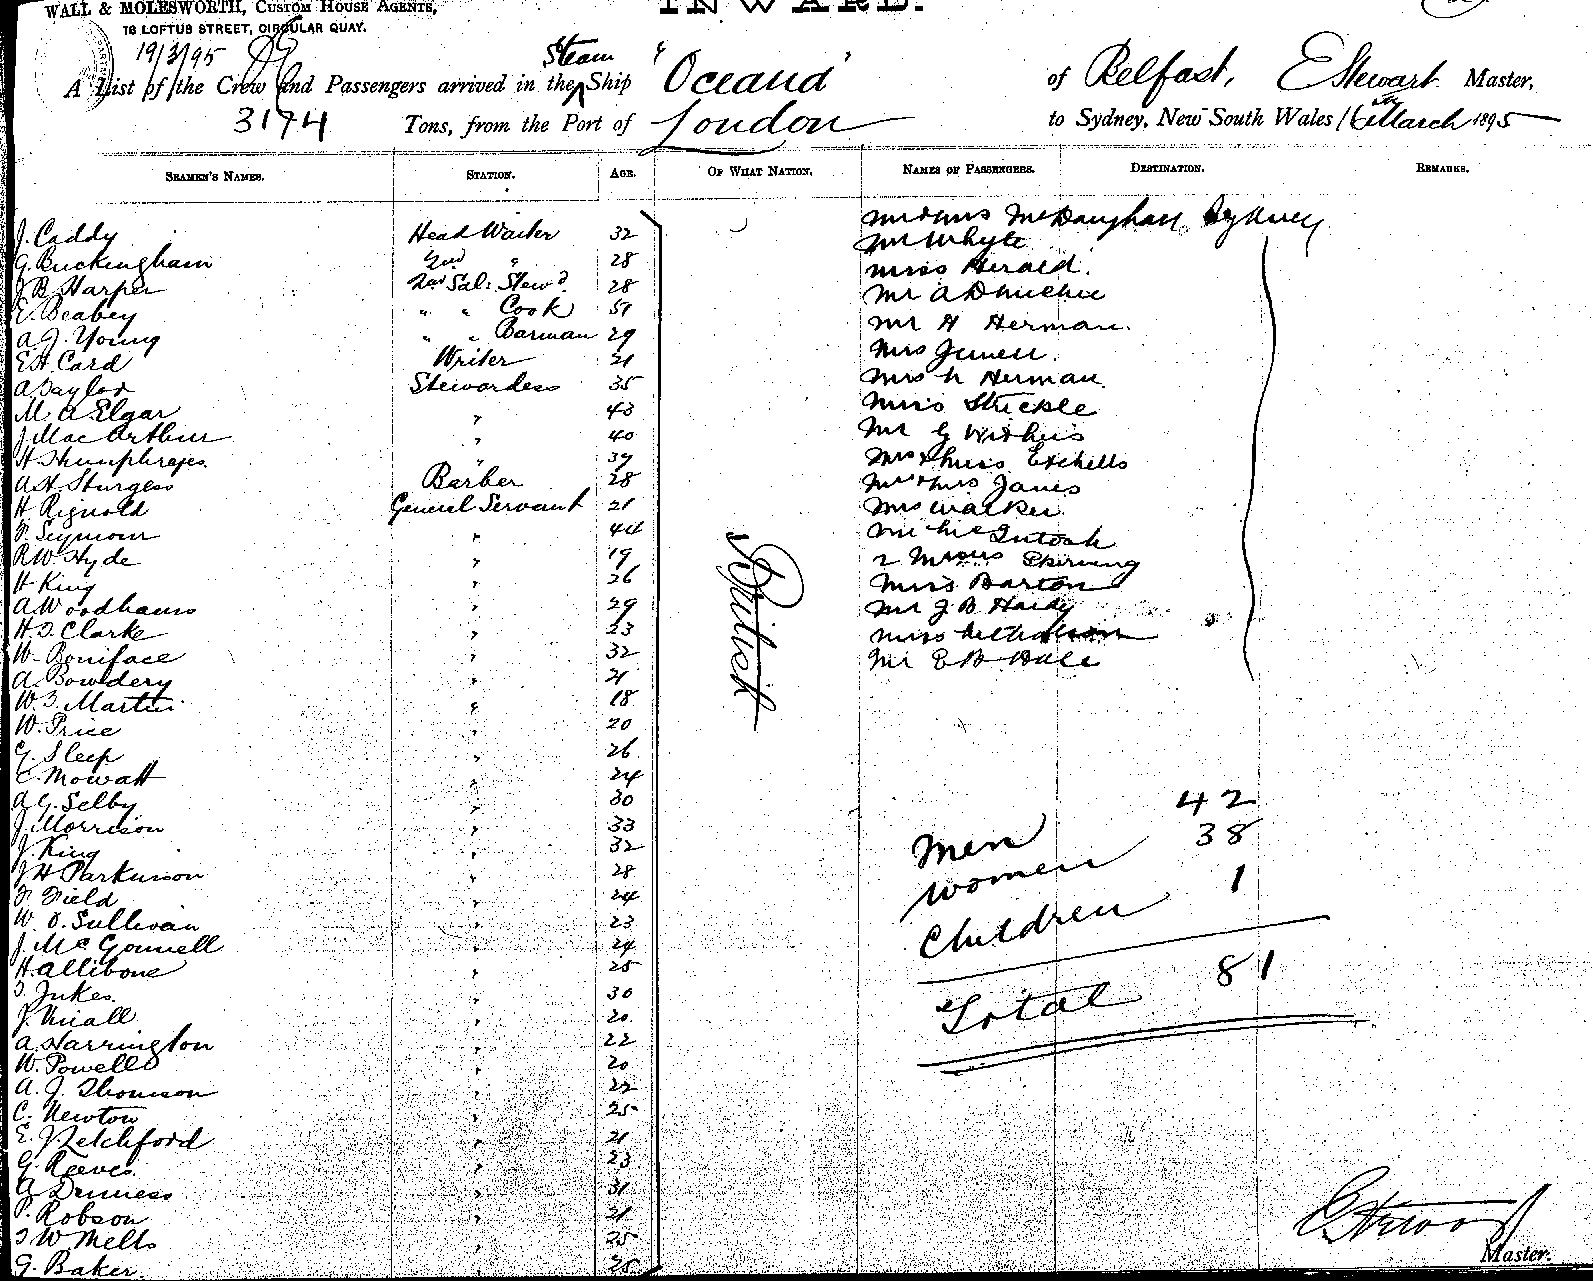 WALL & MOLESWORTH, CUSTOM HOUSE AGENTS,
INWARD.
16 LOFTUS STREET, CIRCULAR QUAY.
19/3/95
A List of the Crew and Passengers arrived in the Steam Ship "Oceana" of Belfast, E Stewart Master,
3174 Tons, from the Port of London to Sydney, New South Wales 16th March 1895
SEAMEN'S NAMES. STATION. AGE. OF WHAT NATION. NAMES OF PASSENGERS. DESTINATION. REMARKS.
J. Caddy Head Waiter 32
G. Buckingham 2nd " 28
J B Harper 2nd Sal: Stewd 28
E. Beabey " " Cook 51
A. J. Young " " Barman 29
E H. Card Writer 21
A Taylor Stewardess 35
M A Elgar " 43
J. MacArthur " 40
H Humphreyes. " 39
A H. Sturgess Barber 28
H Rignold General Servant 21
F. Seymour " 44
R W. Hyde " 19
H King " 26
A Woodhams " 29
H. T. Clarke " 23
W. Boniface " 32
A. Bowdery " 21
W. T. Martin " 18
W. Price " 20
G. Sleep " 26
E. Mowatt " 24
A. G. Selby " 30
J. Morrison " 33
J. King " 32
J H Parkinson " 28
F. Field " 24
W. O. Sullivan " 23
J. McGonnell " 24
H. Allibone " 25
T. Jukes. " 30
J. Niall " 20.
A. Harrington " 22
W. Powell " 20
A. J. Thomson " 22
C. Newton " 25
E. J. Letchford " 21
G. Reeves. " 23
G. Denness " 31
Robson " 21
T W Melts " 25
G. Baker. 25
British
Mr & Mrs Sydney
Mr Whyte
Miss Herald.
Mr A D Michie
Mr H Herman.
Mrs Jewell.
Mrs Herman.
Miss Stickle
Mr G Withers
Mrs & Miss Etchells
Mr & Mrs Janes
Mrs Walker
Mr McIntosh
2 Misses Skirving
Miss Barton
Mr J. B. Hardy
Miss Nicholson
Mr E B Hall
Men 42
Women 38
Children 1
Total 81
Master.